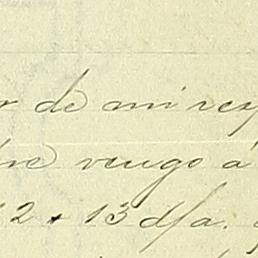 r de mi res
bre vengo á
12 + 13 d/a.